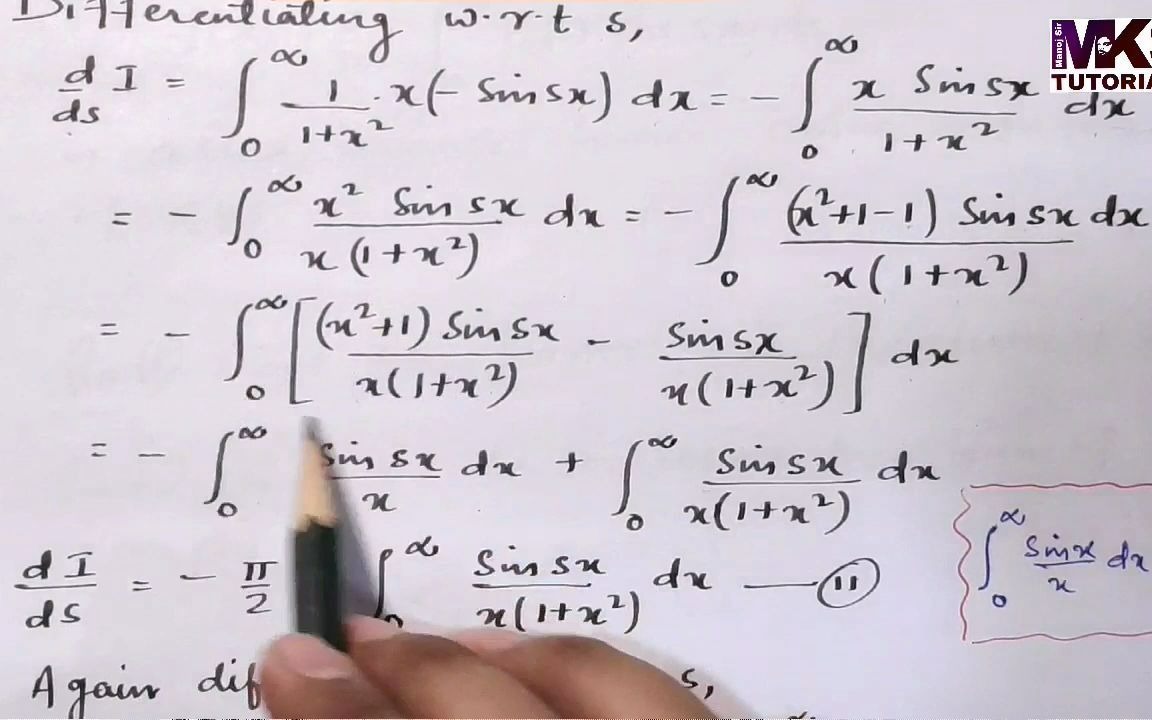 Differentiating w.r.t s,
d/ds I = ∫₀^∞ 1/(1+x²) . x(- Sin sx) dx = - ∫₀^∞ x Sin sx/(1+x²) dx
= - ∫₀^∞ x² Sin sx/(x(1+x²)) dx = - ∫₀^∞ (x²+1-1) Sin sx/(x(1+x²)) dx
= - ∫₀^∞ [(x²+1) Sin sx/(x(1+x²)) - Sin sx/(x(1+x²))] dx
= - ∫₀^∞ Sin sx/x dx + ∫₀^∞ Sin sx/(x(1+x²)) dx
dI/ds = - π/2 ∫₀^∞ Sin sx/(x(1+x²)) dx — (11)
∫₀^∞ Sin x/x dx
Again dif s,
Manoj Sir
MKS
TUTORIA